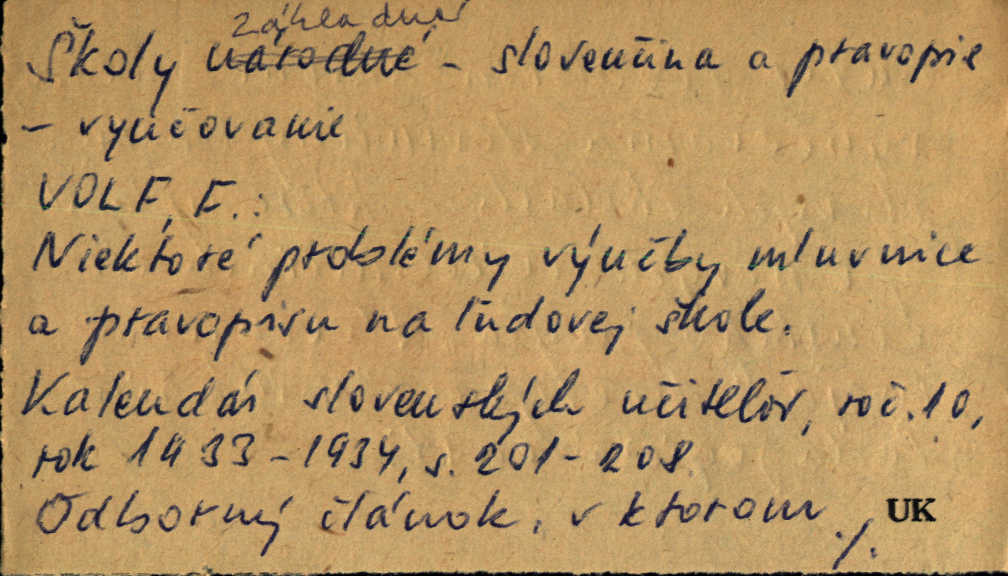 základné
Školy národné - slovenčina a pravopis
- vyučovanie
VOLF, F.:
Niektoré problémy výučby mluvnice
a pravopisu na ľudovej škole.
Kalendár slovenských učiteľov, roč. 10,
rok 1933-1934, s. 201-208.
Odborný článok, v ktorom ./. UK